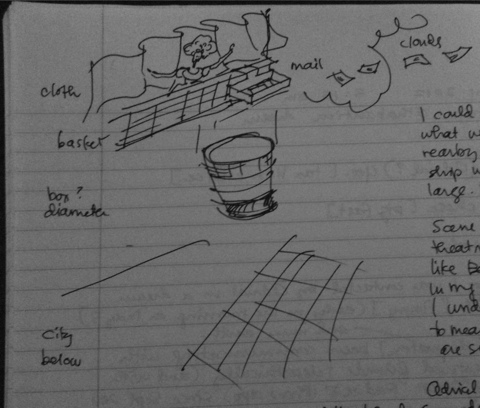 clouds
mail
cloth
basket
box?
diameter
City
below
I could
what w
nearby
ship w
large.
Scene
treatm
like
in my
I und
to mea
are s